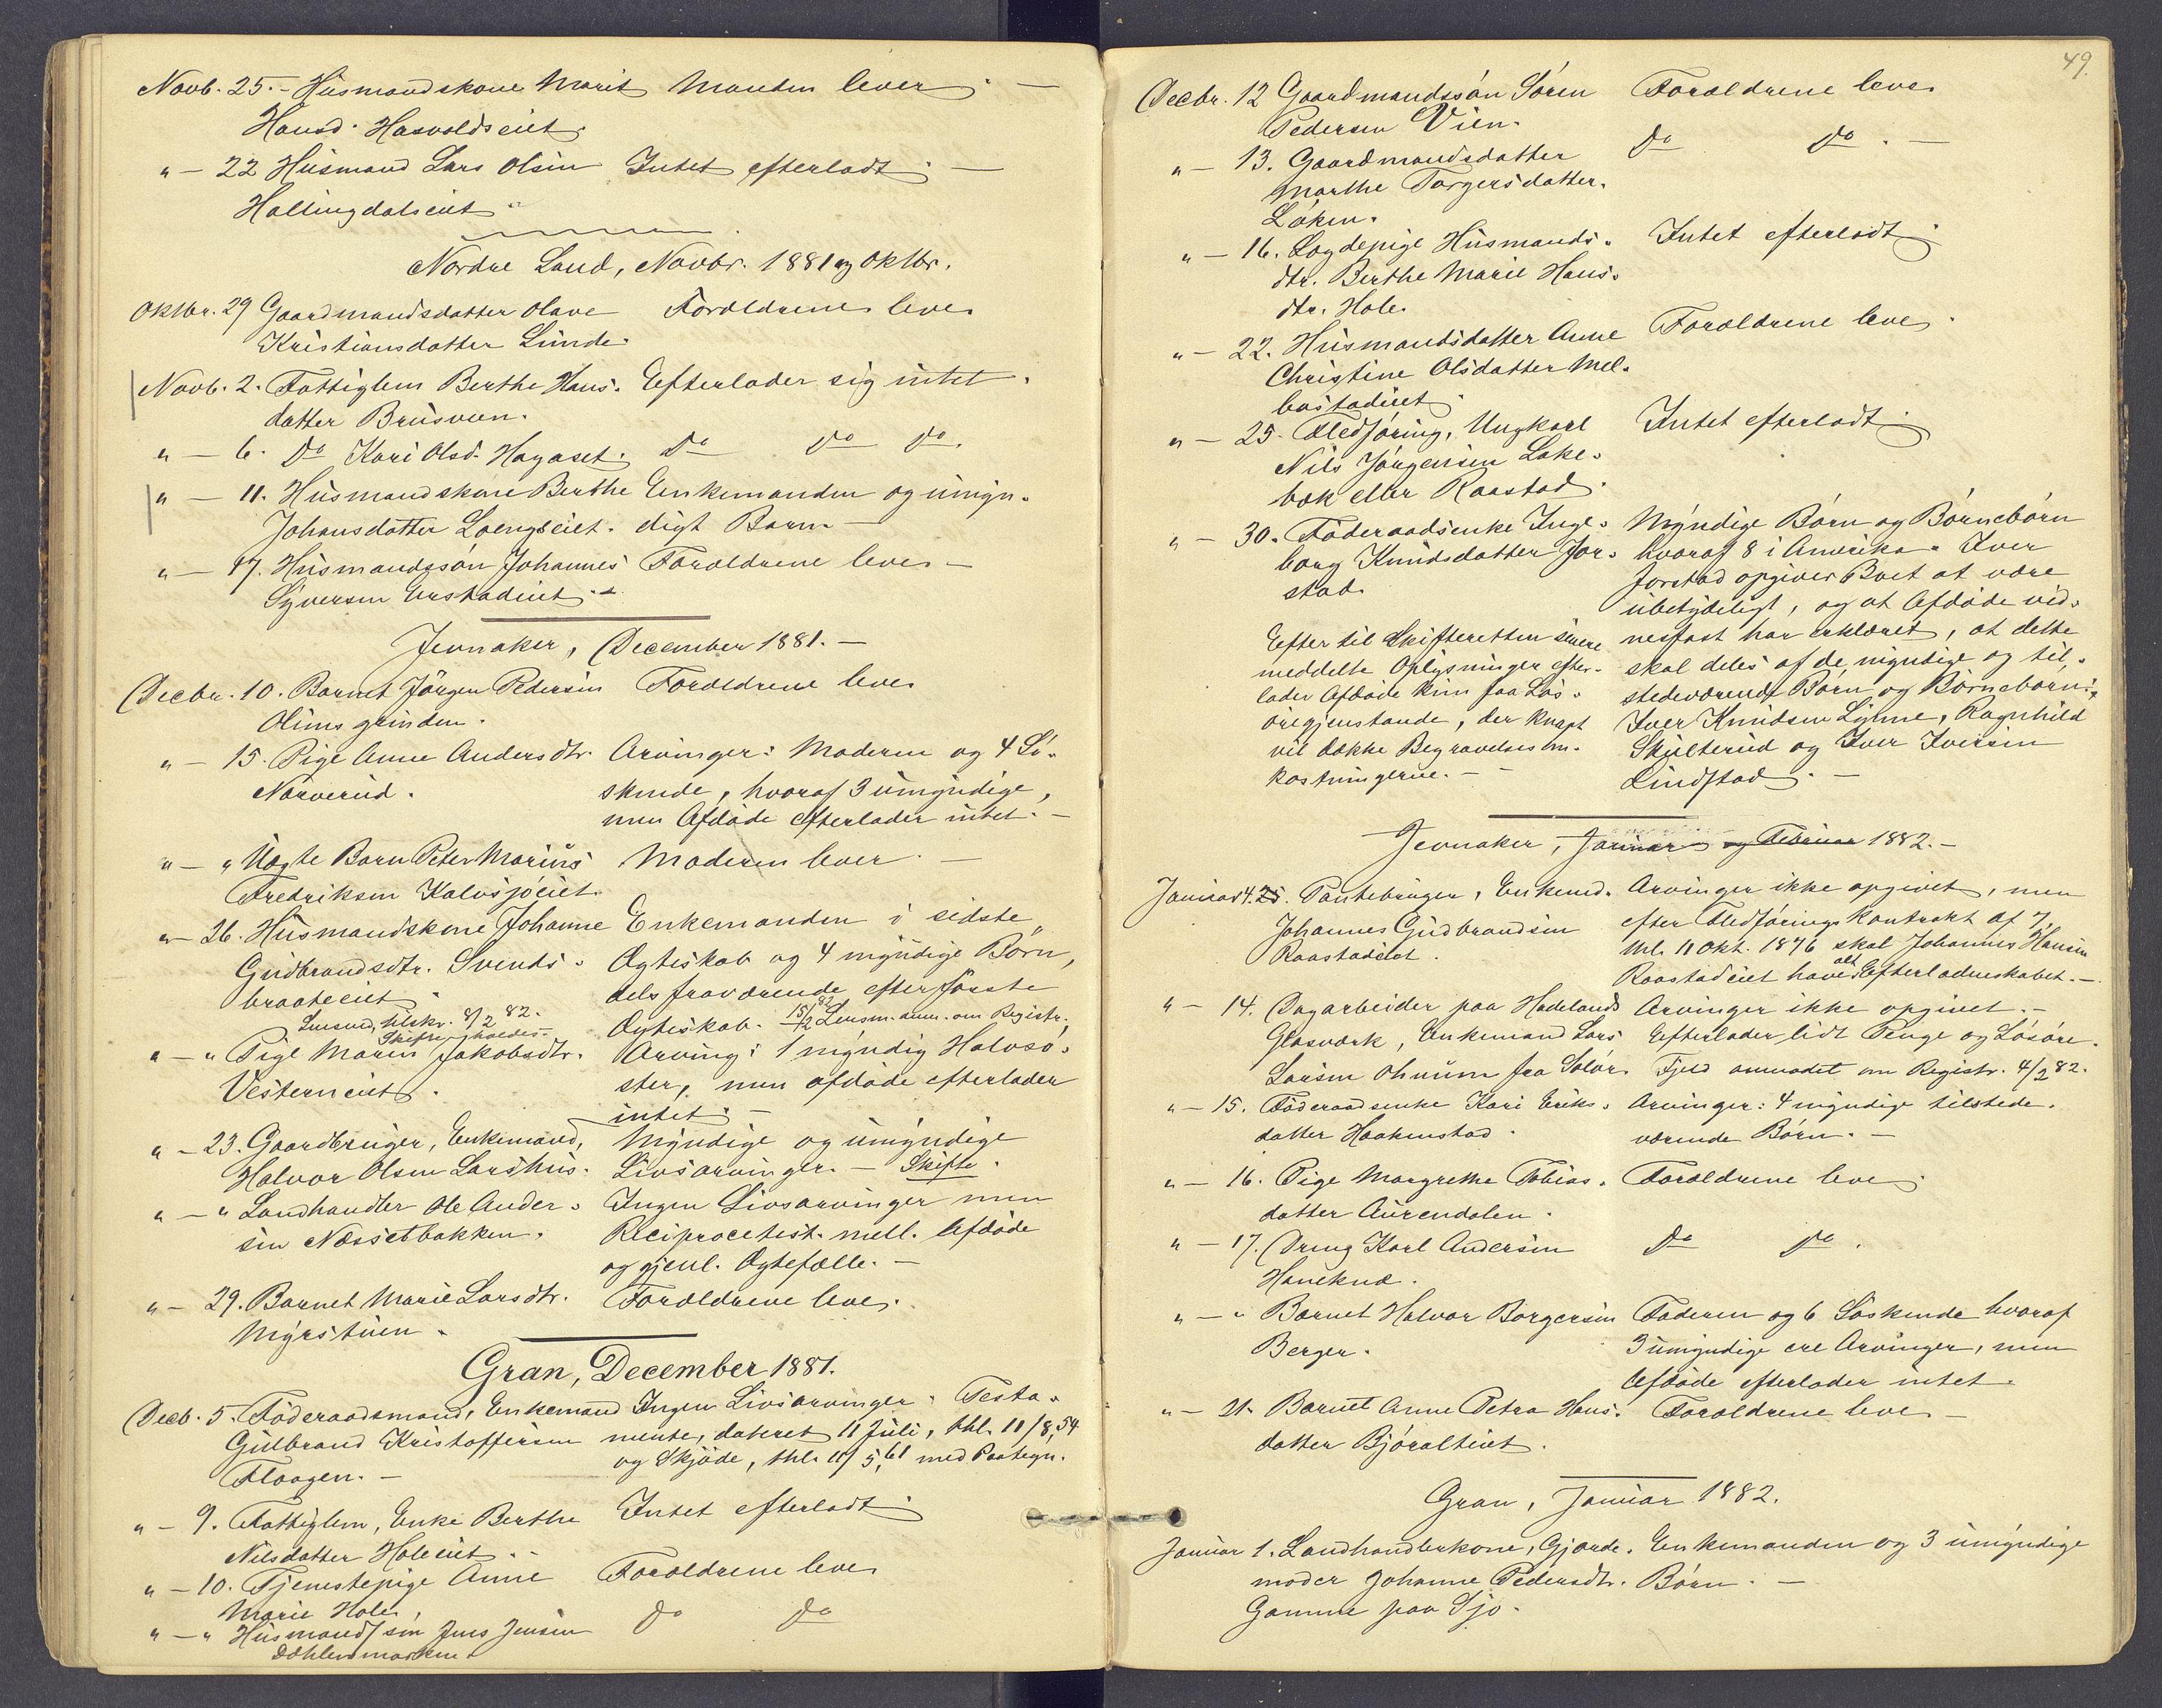 Novb. 25. - Husmandskone Marit Manden lever. -
Hansd. Hasvoldseiet.
" - 22 Husmand Lars Olsen Intet efterladt. -
Hallingdalseiet.
Nordre Land, Novbr. 1881 og Oktbr.
Oktbr. 29 Gaardmandsdatter Olave Forældrene leve
Kristiansdatter Lunde.
Novb. 2. Fattiglem Berthe Hans- Efterlader sig intet.
datter Brusveen.
" - 6. Do Kari Olsd. Hagaset. Do Do Do.
" - 11. Husmandskone Berthe Enkemanden og umyn-
Johansdatter Loengseiet. digt Barn. -
" - 17. Husmandssøn Johannes Forældrene leve. -
Syversen Erstadeiet. -
Jevnaker, December 1881. -
Decbr. 10. Barnet Jørgen Pedersen Forældrene leve
Olimsgrinden.
" - 15. Pige Anne Andersdtr. Arvinger: Moderen og 4 Sø-
Narverud. skende, hvoraf 3 umyndige,
men Afdøde efterlader intet. -
" - " Uægte Barn Peter Marius Moderen lever. -
Fredriksen Kalvsjøeiet.
" - 26. Husmandskone Johanne Enkemanden i sidste
Gudbrandsdtr. Svends- Ægteskab og 4 myndige Børn,
braateeiet. dels fraværende efter første
Lensmd. tilskr. 8/2 82. Ægteskab. 15/2 82 Lensm. anm. om Registr.
Skifte holdes -
" - " Pige Maren Jakobsdtr. Arving: 1 myndig Halvsø-
Vesterneiet. ster, men afdøde efterlader
intet. -
" - 23. Gaardbruger, Enkemand, Myndige og umyndige
Halvor Olsen Larshus. Livsarvinger. - Skifte.
" - " Landhandler Ole Ander- Ingen Livsarvinger men
sen Næssetbakken. Reciprocetest. mell. Afdøde
og gjenl. Ægtefælle. -
" - 29. Barnet Marie Larsdtr. Forældrene leve.
Myrstuen.
Gran, December 1881.
Decb. 5. Føderaadsmand, Enkemand Ingen Livsarvinger. Testa-
Gulbrand Kristoffersen mente, dateret 11 Juli, thl. 11/8, 54
Flaagen. - og Skjøde, thl. 11/5, 61 med Paategn.
" - 9. Fattiglem, Enke Berthe Intet efterladt.
Nilsdatter Holeeiet. -
" - 10. Tjenestepige Anne Forældrene leve
Marie Hole.
" - " Husmandssøn Jens Jensen Do Do
Dæhlenmarken
49.
Decbr. 12 Gaardmandssøn Søren Forældrene leve
Pedersen Vien.
" - 13. Gaardmandsdatter Do Do. -
Marthe Torgersdatter
Løken.
" - 16. Lægdepige Husmands- Intet efterladt.
dtr. Berthe Marie Hans-
dtr. Hole.
" - 22. Husmandsdatter Anne Forældrene leve.
Christine Olsdatter Mel-
bostadeiet.
" - 25. Fledføring, Ungkarl Intet efterladt.
Nils Jørgensen Lake-
bæk eller Raastad.
" - 30. Føderaadsenke Inge- Myndige Børn og Børnebørn
borg Knudsdatter Jor- hvoraf 8 i Amerika. Iver
stad. Jorstad opgiver Boet at være
ubetydeligt, og at Afdøde vid-
Efter til Skifteretten senere nesfast har erklæret, at dette
meddelte Oplysninger efter- skal deles af de myndige og til-
lader Afdøde kun faa Løs- stedeværende Børn og Børnebørn:
øregjenstande, der knapt Iver Knudsen Lynne, Ragnhild
vil dække Begravelsesom- Skulterud og Iver Iversen
kostningerne. - Lindstad. -
Jevnaker, Januar og Februar 1882. -
Januar 4. 25. Pantebruger, Enkemd. Arvinger ikke opgivet, men
Johannes Gudbrandsen efter Fledføringskontrakt af 7,
Raastadeiet. thl. 11 Okt. 1876 skal Johannes Hansen
Raastadeiet have alt Efterladenskabet. -
" - 14. Dagarbeider paa Hadelands Arvinger ikke opgivet. -
Glasværk, Enkemand Lars Efterlader lidt Penge og Løsøre.
Larsen Ohnum fra Solør. Fjeld anmodet om Registr. 4/2 82.
" - 15. Føderaadsenke Kari Eriks- Arvinger: 4 myndige tilstede-
datter Haakenstad. værende Børn. -
" - 16. Pige Margrethe Tobias- Forældrene leve.
datter Aurendalen.
" - 17. Dreng Karl Andersen Do Do.
Haneknæ.
" - " Barnet Halvor Borgersen Faderen og 6 Søskende hvoraf
Berger. 3 umyndige ere Arvinger, men
Afdøde efterlader intet.
" - 21. Barnet Anne Petra Hans- Forældrene leve -
datter Bjøralteiet.
Gran, Januar 1882.
Januar 1. Landhandlerkone, Gjorde- Enkemanden og 3 umyndige
moder Johanne Pedersdtr. Børn. -
Gamme paa Sjo.